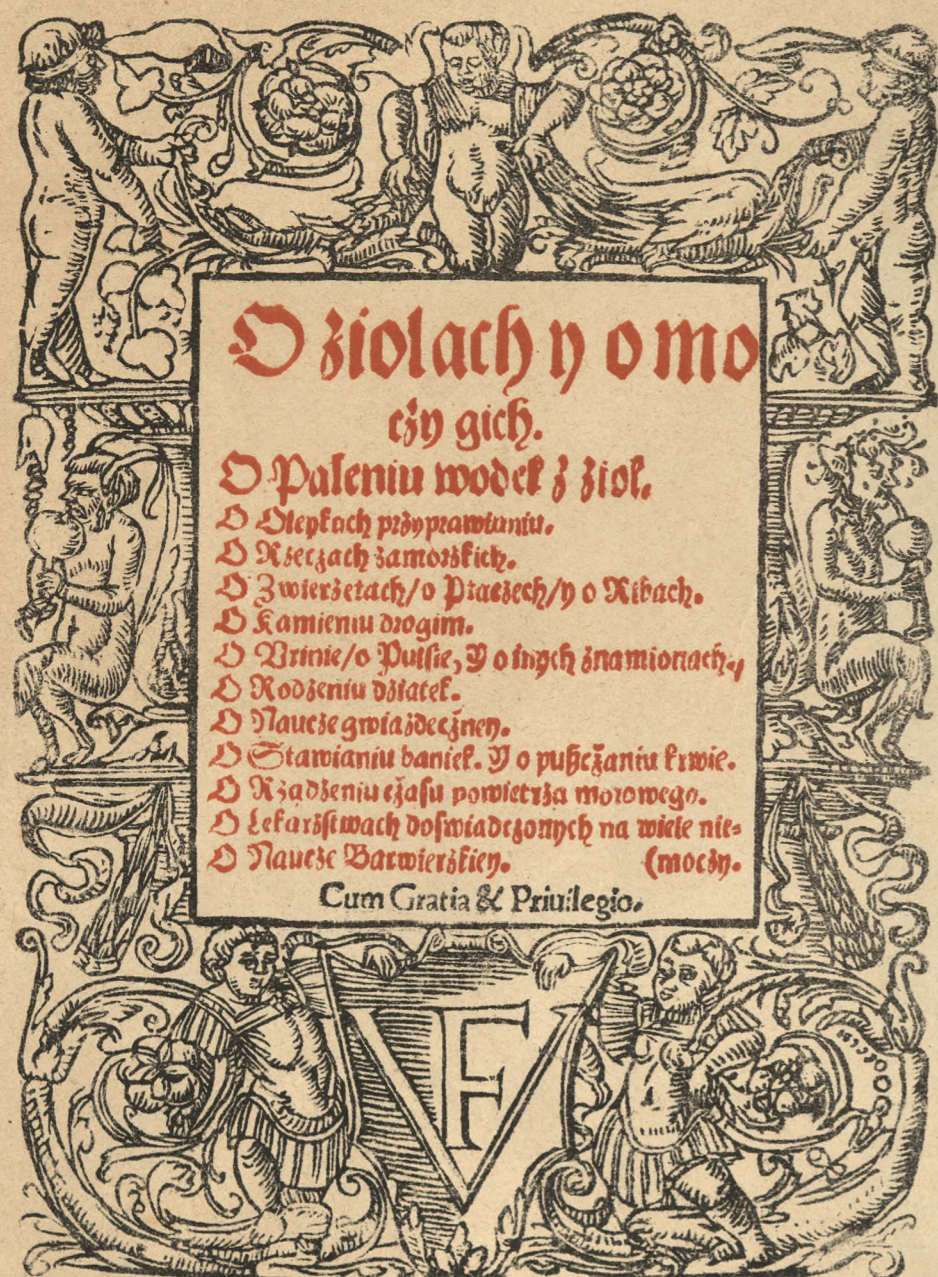 O ziolach y o mo
czy gich.
O Paleniu wodek z ziol.
O Oleykach przyprawianiu.
O Rzeczach zamorskich.
O Zwierzetach/o Ptaczech/y o Ribach.
O Kamieniu drogim.
O Vrinie/o Pulsie, Y o innych znamionach.,
O Rodzeniu dziatek.
O Naucze gwiazdeczney.
O Stawianiu baniek. Y o pußczaniu krwie.
O Rządzeniu czasu powietrza morowego.
O Lekarzstwach doswiadczonych na wiele nie⸗
O Naucze Barwierzkiey. (moczy.
Cum Gratia & Priuilegio.
FV